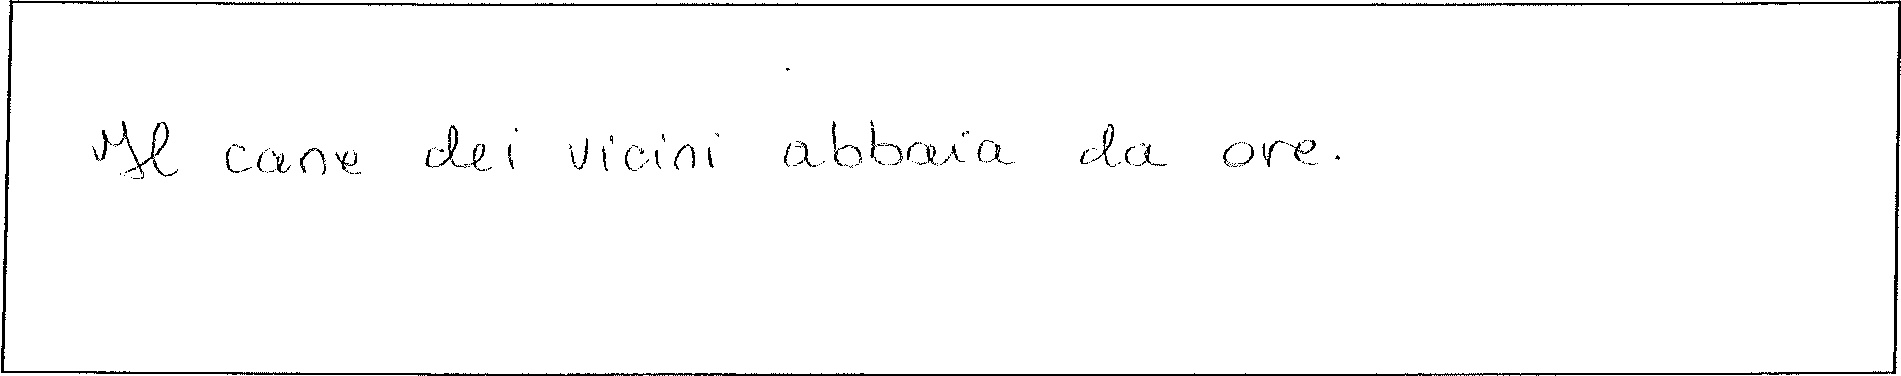 Il cane dei vicini abbaia da ore.